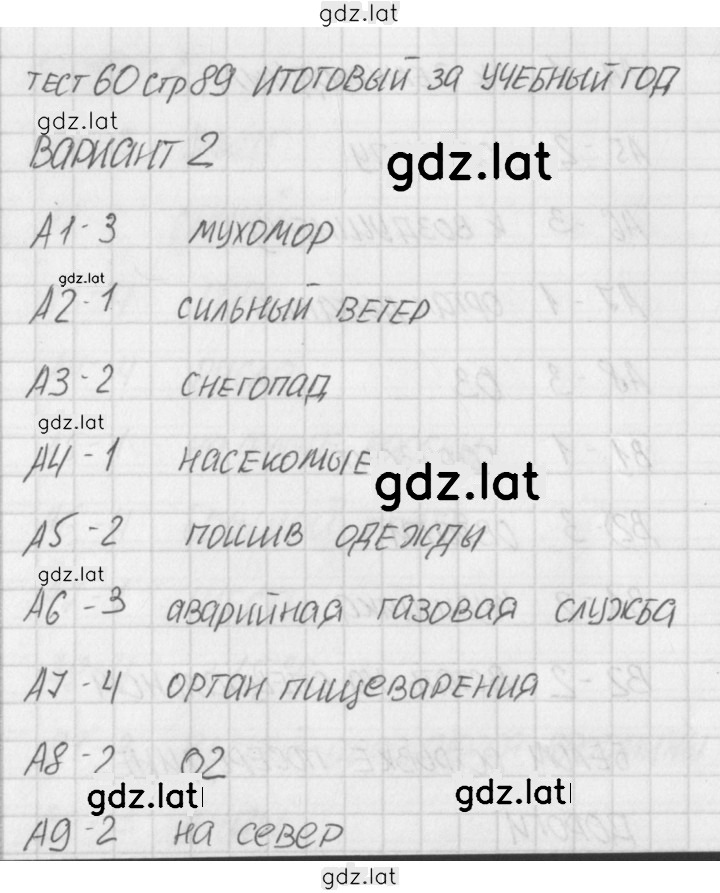 gdz.lat
тест 60 стр 89 итоговый за учебный год
gdz.lat
Вариант 2
gdz.lat
А1-3 мухомор
gdz.lat
А2-1 сильный ветер
А3-2 снегопад
gdz.lat
А4-1 насекомые
gdz.lat
А5-2 пошив одежды
gdz.lat
А6-3 аварийная газовая служба
А7-4 орган пищеварения
А8-2 02
gdz.lat gdz.lat
А9-2 на север
gdz.lat